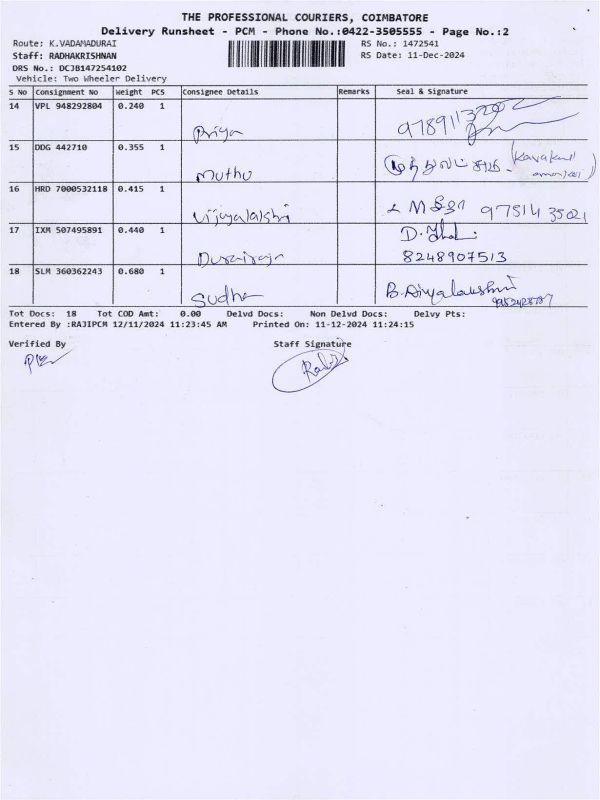 THE PROFESSIONAL COURIERS, COIMBATORE
Delivery Runsheet - PCM - Phone No.:0422-3505555 - Page No.:2
Route: K.VADAMADURAI RS No.: 1472541
Staff: RADHAKRISHNAN RS Date: 11-Dec-2024
DRS No.: DCJB147254102
Vehicle: Two Wheeler Delivery
S No Consignment No Weight PCS Consignee Details Remarks Seal & Signature
14 VPL 948292804 0.240 1
Priya
15 DDG 442710 0.355 1
Muthu
16 HRD 7000532118 0.415 1
Vijayalakshi 9751435021
17 IXM 507495891 0.440 1
Durairaja 8248907513
18 SLM 360362243 0.680 1
Sudha
Tot Docs: 18 Tot COD Amt: 0.00 Delvd Docs: Non Delvd Docs: Delvy Pts:
Entered By :RAJIPCM 12/11/2024 11:23:45 AM Printed On: 11-12-2024 11:24:15
Verified By Staff Signature